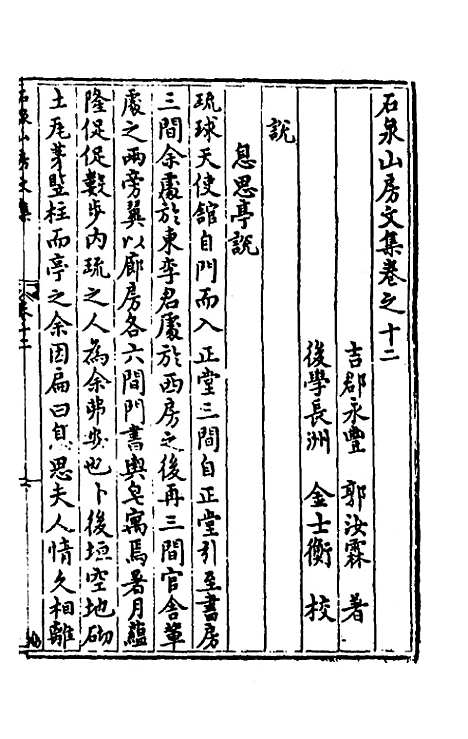 石泉山房文集卷之十二
吉郡永豐　郭汝霖　著
後學長洲　金士衡　校
說
息思亭說
琉球天使館自門而入正堂三間自正堂引至書房
三間余處於東李君處於西房之後再三間官舍輩
處之兩旁翼以廊房各六間門書輿皂寓焉暑月蘊
隆促促數步內琉之人為余弗安也卜後垣空地砌
土瓦茅豎柱而亭之余因扁曰息思夫人情久相離
石泉山房文集
卷十二